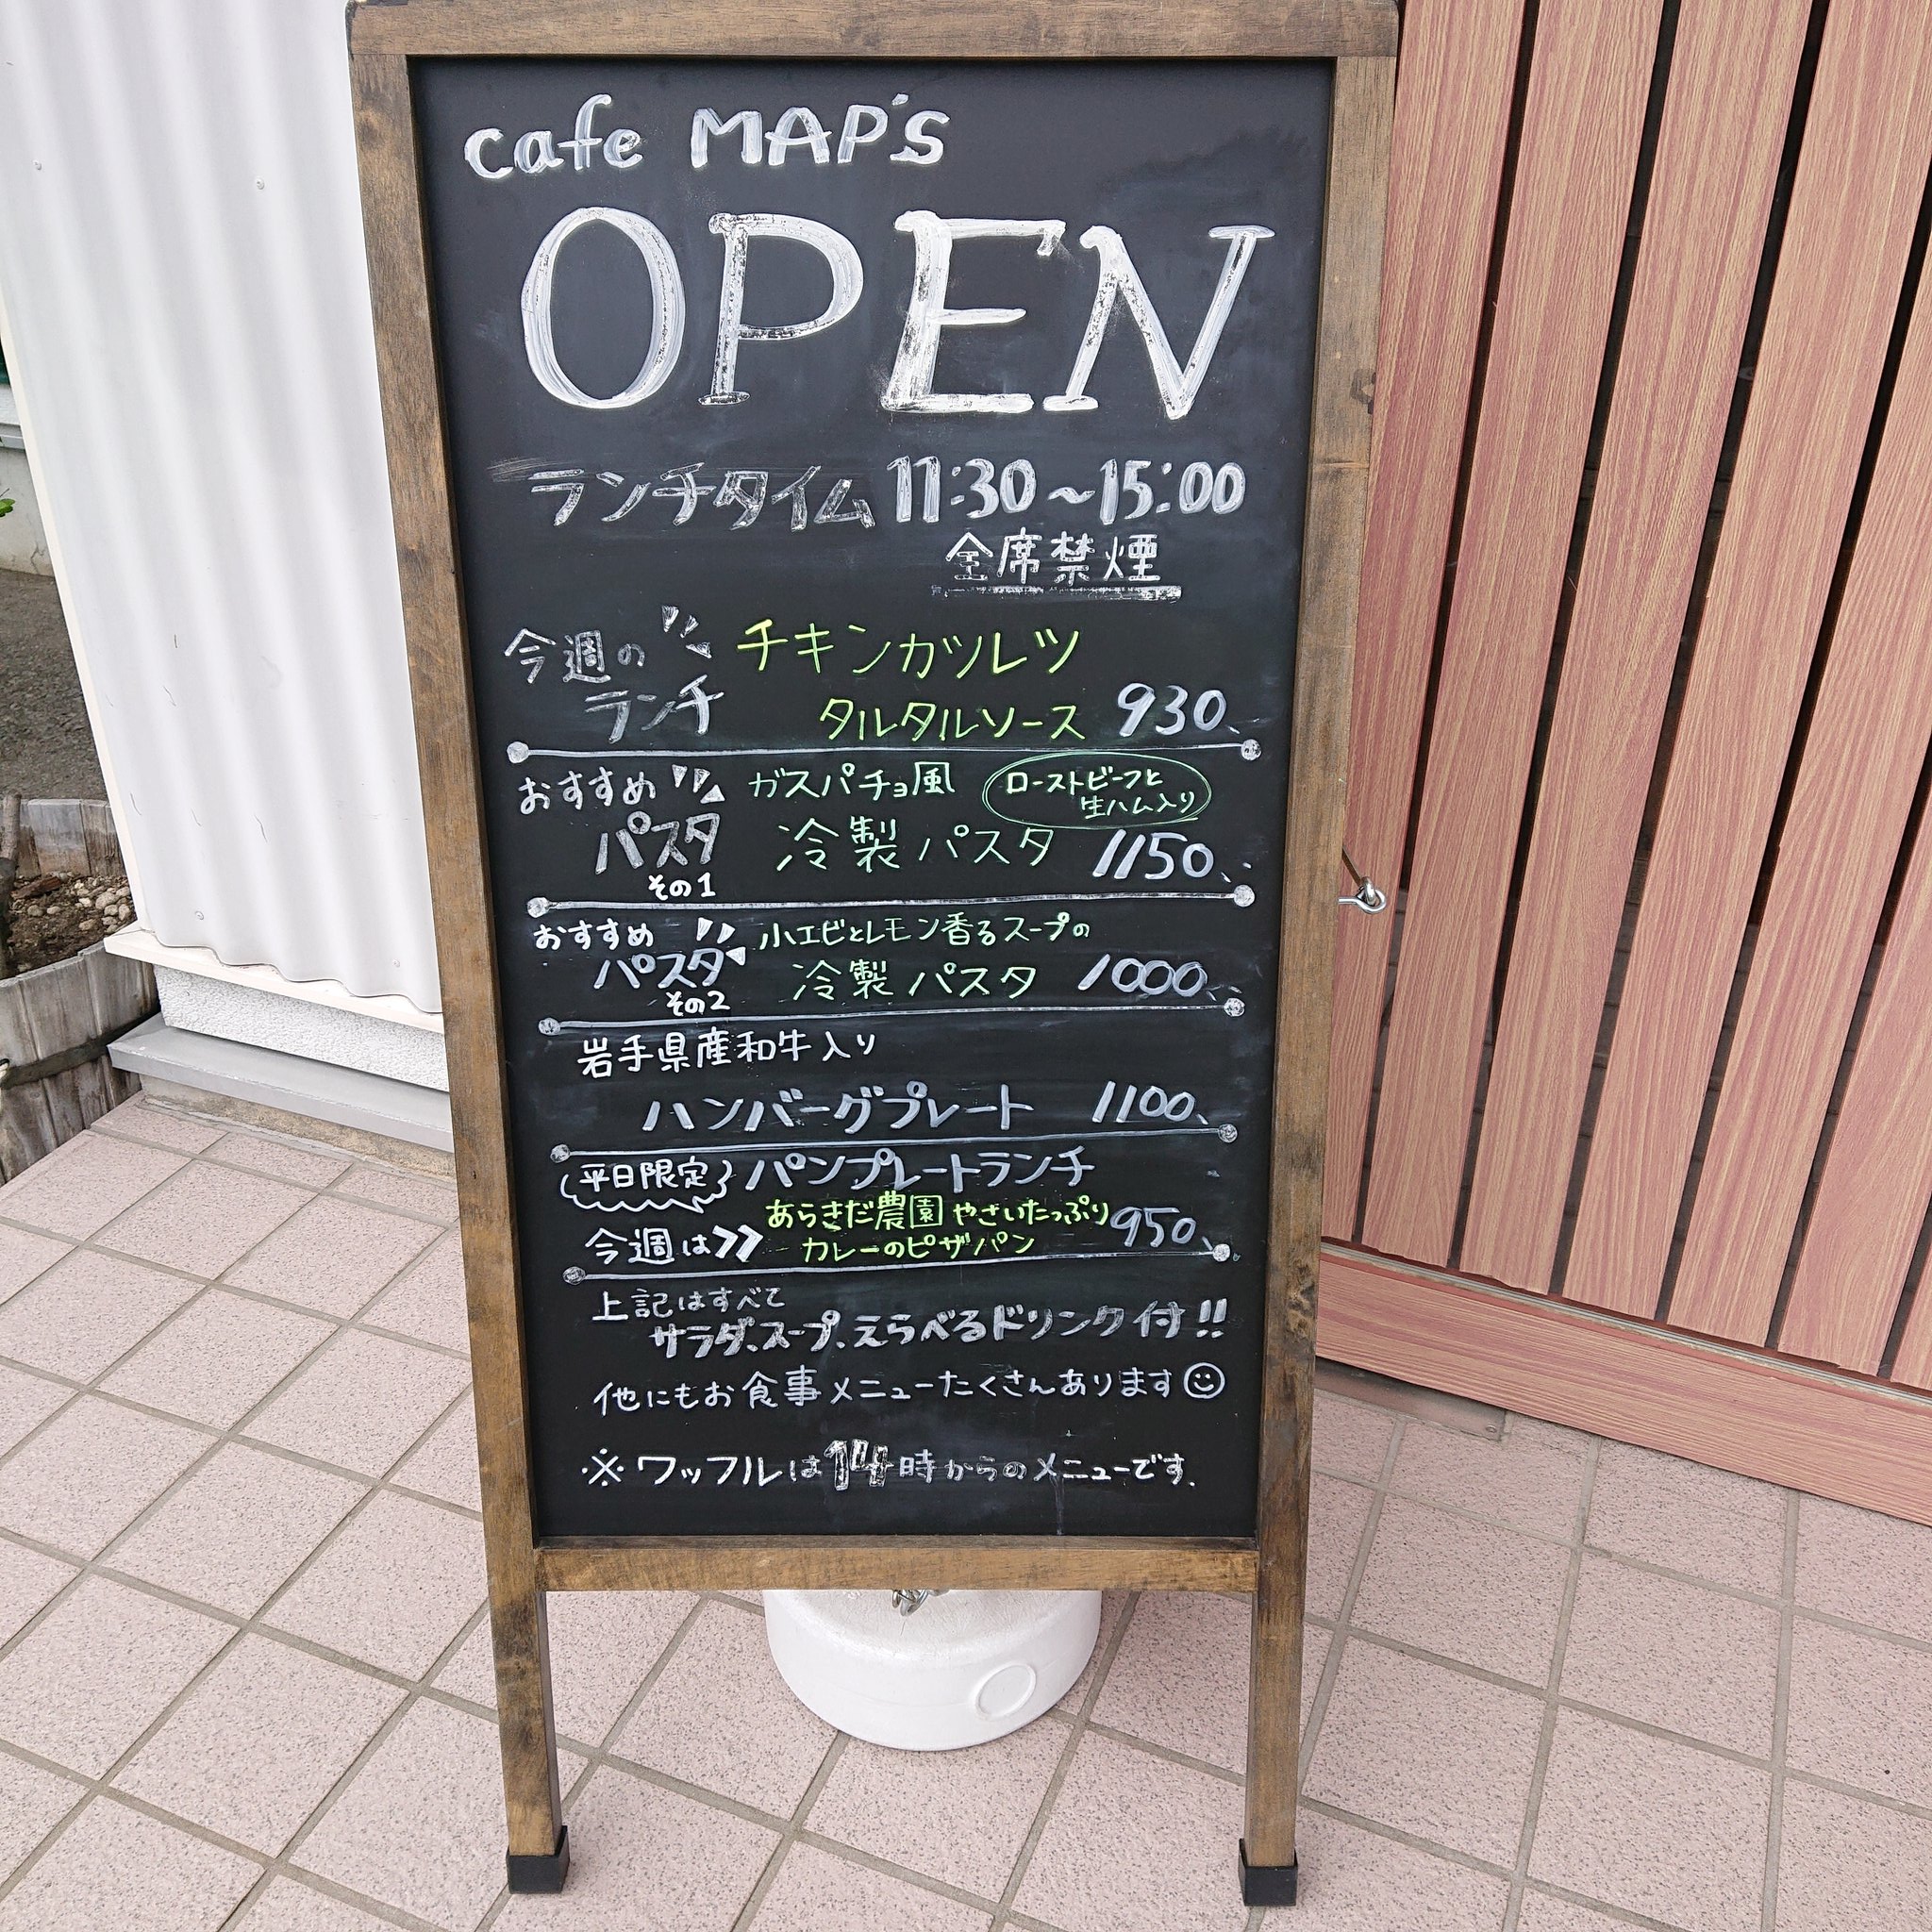 cafe MAP's
OPEN
ランチタイム 11:30～15:00
全席禁煙
今週の
ランチ
チキンカツレツ
タルタルソース 930、
おすすめ
パスタ
その1
ガスパチョ風
ローストビーフと
生ハム入り
冷製パスタ 1150、
おすすめ
パスタ
その2
小エビとレモン香るスープの
冷製パスタ 1000、
岩手県産和牛入り
ハンバーグプレート 1100、
平日限定 パンプレートランチ
今週は》
あらきだ農園 やさいたっぷり
カレーのピザパン 950、
上記はすべて
サラダ、スープ、えらべるドリンク付!!
他にもお食事メニューたくさんあります☺
※ワッフルは14時からのメニューです。